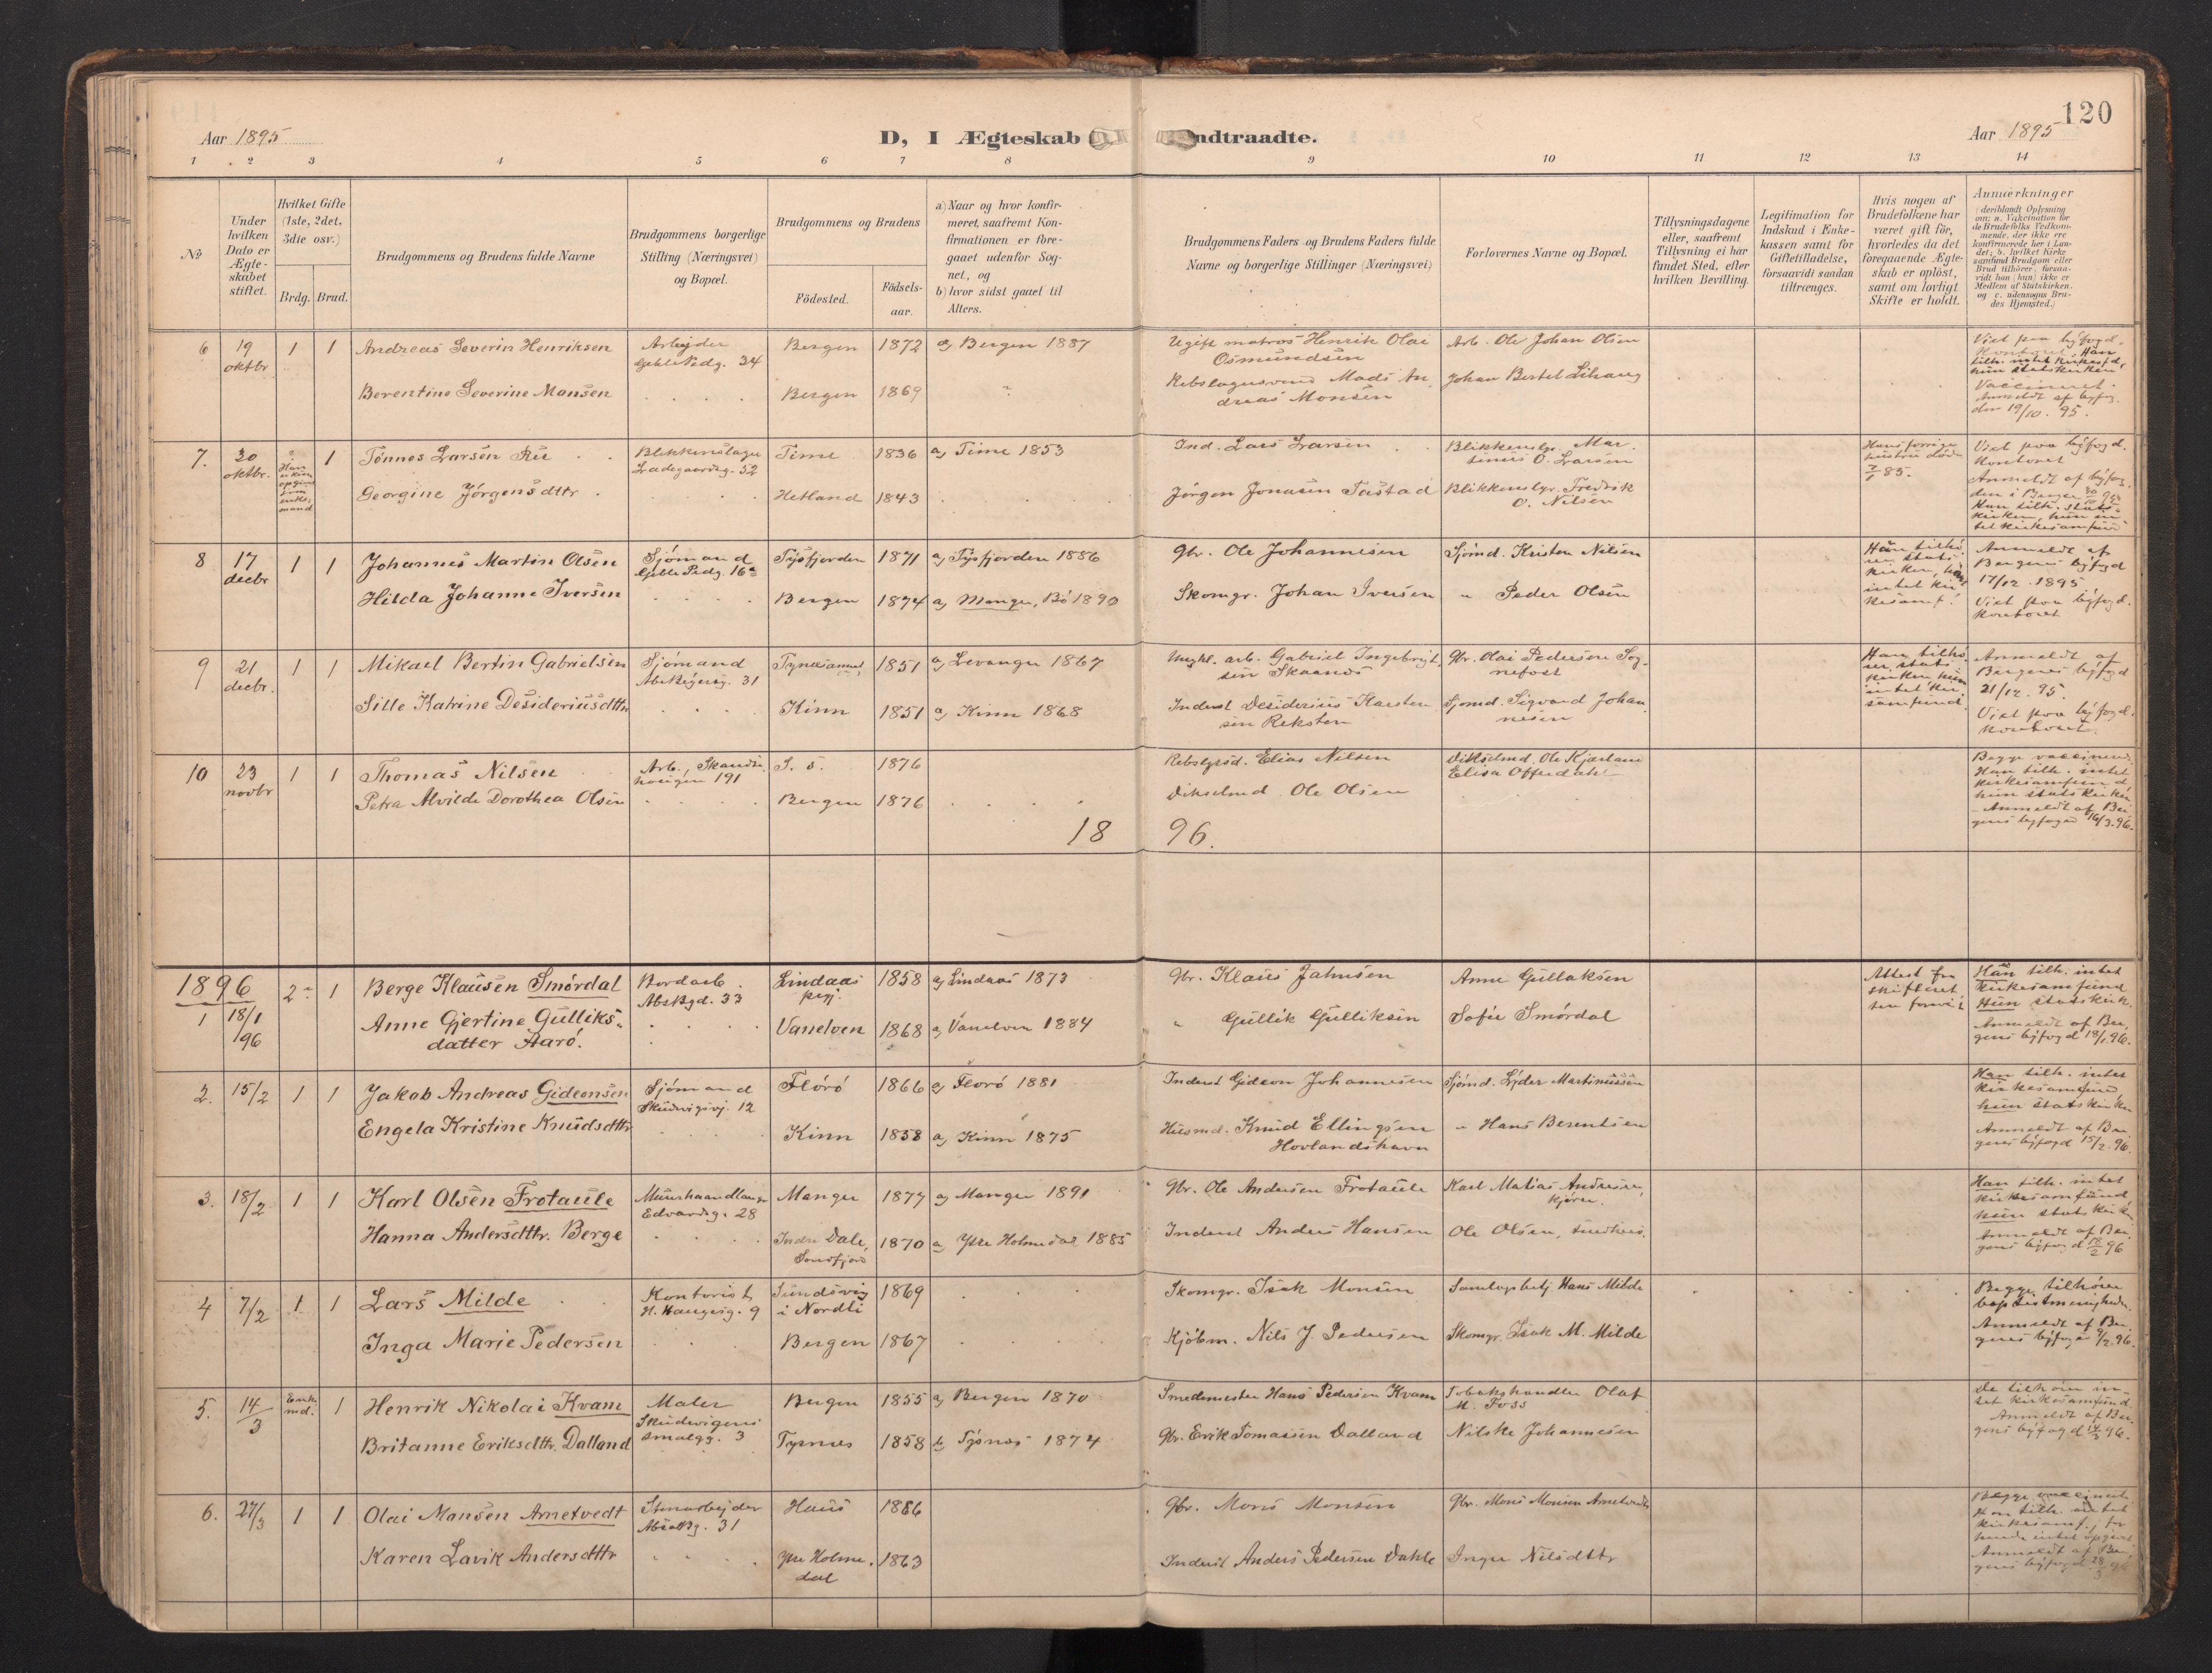 120
Aar 1895
D, I Ægteskab
ndtraadte.
Aar 1895
1 2 3 4 5 6 7 8 9 10 11 12 13 14
No
Under hvilken Dato er Ægte-skabet stiftet.
Hvilket Gifte (1ste, 2det, 3die osv.)
Brdg. Brud.
Brudgommens og Brudens fulde Navne
Brudgommens borgerlige Stilling (Næringsvei) og Bopæl.
Brudgommens og Brudens
Födested.
Födsels-aar.
a) Naar og hvor konfir-meret, saafremt Kon-firmationen er fore-gaaet udenfor Sog-net, og
b) hvor sidst gaaet til Alters.
Brudgommens Faders og Brudens Faders fulde Navne og borgerlige Stillinger (Næringsvei)
Forlovernes Navne og Bopæl.
Tillysningsdagene eller, saafremt Tillysning ei har fundet Sted, efter hvilken Bevilling.
Legitimation for Indskud i Enke-kassen samt for Giftetilladelse, forsaavidt saadan tiltrænges.
Hvis nogen af Brudefolkene har været gift för, hvorledes da det foregaaende Ægte-skab er oplöst, samt om lovligt Skifte er holdt.
Anmærkninger
(deriblandt Oplysning om: a. Vakcination for de Brudefolks Vedkom-mende, der ikke ere konfirmerede her i Lan-det; b. hvilket Kirke samfund Brudgom eller Brud tilhörer, forsaa-vidt han (hun) ikke er Medlem af Statskirken, og c. udensogns Bru-des Hjemsted.)
6 19 oktbr 1 1 Andreas Severin Henriksen Arbejder 34 Bergen 1872 a) Bergen 1887 Ugift matros Henrik Olai Osmundsen Arb. Ole Johan Olsen
Berentine Severine Monsen Bergen 1869 Mads Andreas Monsen Johan Bertel
Viet paa byfogd. kontoret. Han tilh. intet kirkesfd, hun statskirken. Vaccineret. Anmeldt af byfog. den 19/10. 95.
7. 30 oktbr. 1 Tönnes Larsen Rie Ladegaardsg. 52 Time 1836 a) Time 1853 Ind. Lars Larsen Blikkenslgr. Martinius O. Larsen
Georgine Jörgensdttr Hetland 1843 Jörgen Jonasen Tastad Blikkenslgr. Fredrik O. Nilsen
Hans forrige hustru död 85.
Viet paa byfogd. kontoret Anmeldt af byfog. den i Bergen Han tilh. stats-kirken, hun intet kirkesamfund
8. 17 decbr 1 1 Johannes Martin Olsen Sjömand 16 Tysfjorden 1871 a) Tysfjorden 1886 Gbr. Ole Johannesen Sjömd. Kristen Nilsen
Hilda Johanne Iversen Bergen 1874 a) Manger, Bö 1890 Skomgr. Johan Iversen " Peder Olsen
Anmeldt af Bergens byfogd 17/12. 1895 Viet paa byfogd. kontoret
9 21 decbr. 1 1 Mikael Bertin Gabrielsen Sjömand 31 1851 a) Levanger 1867 arb. Gabriel Ingebrigtsen Skaanes Gbr. Olai Pedersen Sognefost
Sille Katrine Desideriusdttr Kinn 1851 a) Kinn 1868 Inderst Desiderius Karstensen Reksten Sjömd. Sigvard Johannesen
Anmeldt af Bergens byfogd 21/12. 95. Viet paa byfogd. kontoret.
10 23 novbr 1 1 Thomas Nilsen Arb. 191 S. s. 1876 Elias Nilsen Ole Kjærland Elisa Offerdahl
Petra Alvilde Dorothea Olsen Bergen 1876 Ole Olsen
Begge vaccinerede Han tilh. intet kirkesamfund hun statskirken - Anmeldt af Bergens byfogd 16/3. 96.
18 96.
1896
1 18/1 96 2 1 Berge Klausen Smördal Bordarb. 33 Lindaas 1858 a) Lindaas 1873 Gbr. Klaus Jahnsen Anne Gullaksen
Anne Gjertine Gulliks-datter Aarö. Vanelven 1868 a) Vanelven 1884 " Gullik Gulliksen Sofie Smördal
Attest fra skifteret
Han tilh. intet kirkesamfund Hun statskirk. Anmeldt af Bergens byfogd 18/1. 96.
2. 15/2 1 1 Jakob Andreas Gideonsen Sjömand Skudevigsvj. 12 Florö 1866 a) Florö 1881 Inderst Gideon Johannesen Sjömd. Lyder Martinussen
Engela Kristine Knudsdttr Kinn 1858 a) Kinn 1875 Husmd. Knud Ellingsen Hovlandshavn " Hans Berentsen
Han tilh. intet kirkesamfund hun statskirken Anmeldt af Bergens byfogd 15/2. 96.
3. 18/2 1 1 Karl Olsen Frotaule Muurhaandlanger Edvardsg. 28 Manger 1877 a) Manger 1891 Gbr. Ole Andersen Frotaule Karl Matias Andersen, kjörer
Hanna Andersdttr. Berge Indre Dale, Söndfjord 1870 a) Ytre Holmedal 1885 Inderst Anders Hansen Ole Olsen,
Han tilh. intet kirkesamfund, hun statskirk. Anmeldt af Bergens byfogd 18/2 96
4 7/2 1 1 Lars Milde Kontorist H. Haugesg. 9 Sundsvig i Nordli 1869 Skomgr. Isak Monsen Hans Milde
Inga Marie Pedersen Bergen 1867 Kjöbm. Nils J. Pedersen Skomgr. Isak M. Milde
Begge tilhörer baptistmenigheden. Anmeldt af Bergens byfogd 7/2. 96.
5. 14/3 Enkmd. 1 Henrik Nikolai Kvam Maler Skudevigens smalgg. 3 Bergen 1855 a) Bergen 1870 Smedemester Hans Pedersen Kvam Tobakshandler Olaf M. Foss
Britanne Eriksdttr. Dalland Tysnes 1858 Tysnes 1874 Gbr. Erik Tomassen Dalland Nilske Johannesen
De tilhörer intet kirkesamfund. Anmeldt af Bergens byfogd 14/3 96.
6. 27/3 1 1 Olai Monsen Arnetvedt Stenarbejder 31 Haus 1866 Gbr. Mons Monsen Gbr. Mons Monsen Arnetvedt
Karen Lavik Andersdttr Ytre Holmedal 1863 Inderst Anders Pedersen Dahle Inger Nilsdttr
Begge vaccineret Anmeldt af Bergens byfogd 28/3 96